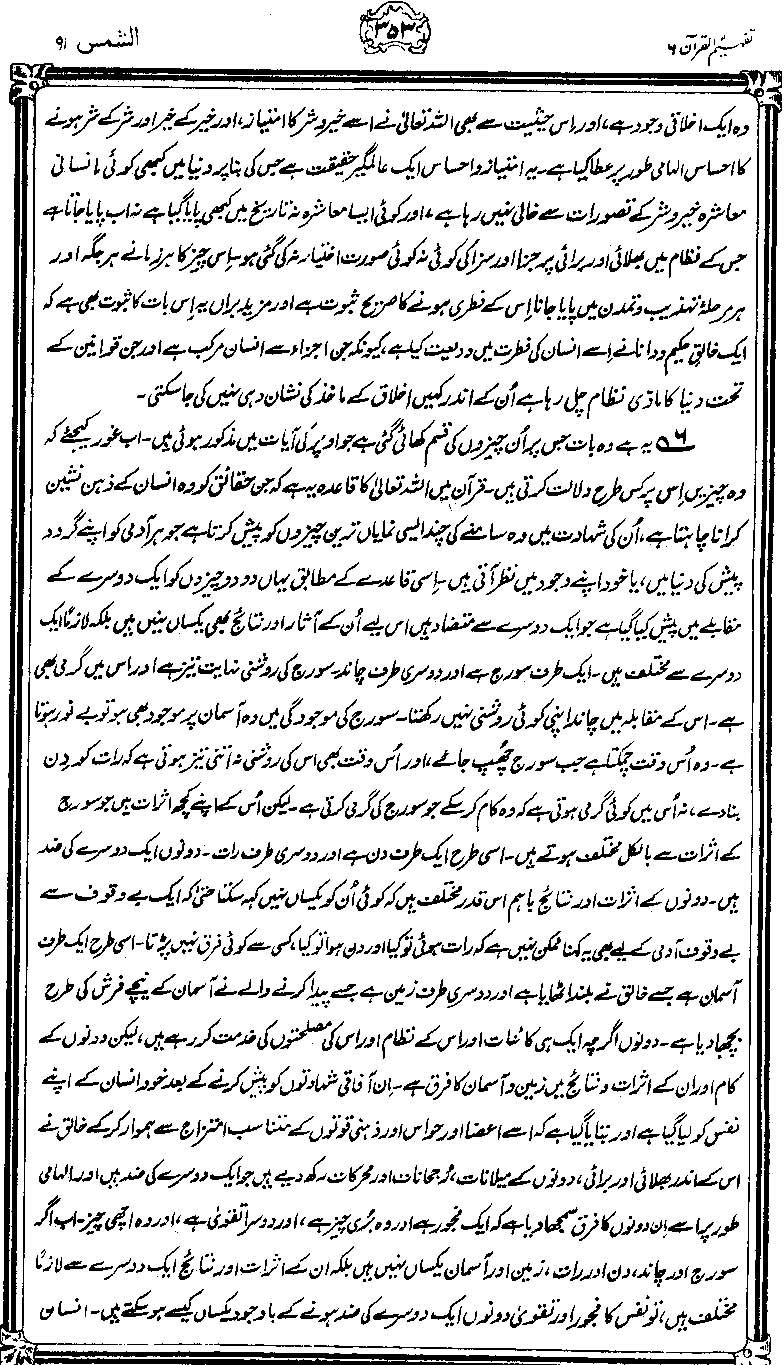 تفہیم القرآن ۶
۳۵۳
الشمس ۹۱
وہ ایک اخلاقی وجود ہے، اور اِس حیثیت سے بھی اللہ تعالیٰ نے اسے خیر و شر کا امتیاز، اور خیر کے خیر اور شر کے شر ہونے
کا احساس الہامی طور پر عطا کیا ہے۔ یہ امتیاز و احساس ایک عالمگیر حقیقت ہے جس کی بنا پر دنیا میں کبھی کوئی انسانی
معاشرہ خیر و شر کے تصورات سے خالی نہیں رہا ہے، اور کوئی ایسا معاشرہ نہ تاریخ میں کبھی پایا گیا ہے نہ اب پایا جاتا ہے
جس کے نظام میں بھلائی اور برائی پر جزا اور سزا کی کوئی نہ کوئی صورت اختیار نہ کی گئی ہو۔ اِس چیز کا ہر زمانے ہر جگہ اور
ہر مرحلۂ تہذیب و تمدن میں پایا جانا اِس کے فطری ہونے کا صریح ثبوت ہے اور مزید براں یہ اِس بات کا ثبوت بھی ہے کہ
ایک خالقِ حکیم و دانا نے اِسے انسان کی فطرت میں ودیعت کیا ہے، کیونکہ جن اجزاء سے انسان مرکب ہے اور جن قوانین کے
تحت دنیا کا مادّی نظام چل رہا ہے اُن کے اندر کہیں اخلاق کے ماخذ کی نشان دہی نہیں کی جا سکتی۔
۶ یہ ہے وہ بات جس پر اُن چیزوں کی قسم کھائی گئی ہے جو اوپر کی آیات میں مذکور ہوئی ہیں۔ اب غور کیجئے کہ
وہ چیزیں اِس پر کس طرح دلالت کرتی ہیں۔ قرآن میں اللہ تعالیٰ کا قاعدہ یہ ہے کہ جن حقائق کو وہ انسان کے ذہن نشین
کرانا چاہتا ہے، اُن کی شہادت میں وہ سامنے کی چند ایسی نمایاں ترین چیزوں کو پیش کرتا ہے جو ہر آدمی کو اپنے گرد و
پیش کی دنیا میں، یا خود اپنے وجود میں نظر آتی ہیں۔ اِسی قاعدے کے مطابق یہاں دو دو چیزوں کو ایک دوسرے کے
مقابلے میں پیش کیا گیا ہے جو ایک دوسرے سے متضاد ہیں اس لیے اُن کے آثار اور نتائج بھی یکساں نہیں ہیں بلکہ لازمًا ایک
دوسرے سے مختلف ہیں۔ ایک طرف سورج ہے اور دوسری طرف چاند۔ سورج کی روشنی نہایت تیز ہے اور اس میں گرمی بھی
ہے۔ اس کے مقابلہ میں چاند اپنی کوئی روشنی نہیں رکھتا۔ سورج کی موجودگی میں وہ آسمان پر موجود بھی ہو تو بے نور ہوتا
ہے۔ وہ اُس وقت چمکتا ہے جب سورج چھُپ جائے، اور اُس وقت بھی اس کی روشنی نہ اتنی تیز ہوتی ہے کہ رات کو دِن
بنا دے، نہ اُس میں کوئی گرمی ہوتی ہے کہ وہ کام کر سکے جو سورج کی گرمی کرتی ہے۔ لیکن اُس کے اپنے کچھ اثرات ہیں جو سورج
کے اثرات سے بالکل مختلف ہوتے ہیں۔ اسی طرح ایک طرف دن ہے اور دوسری طرف رات۔ دونوں ایک دوسرے کی ضد
ہیں۔ دونوں کے اثرات اور نتائج باہم اس قدر مختلف ہیں کہ کوئی اُن کو یکساں نہیں کہہ سکتا حتیٰ کہ ایک بے وقوف سے
بے وقوف آدمی کے لیے بھی یہ کہنا ممکن نہیں ہے کہ رات ہوئی تو کیا اور دن ہوا تو کیا، کسی سے کوئی فرق نہیں پڑتا۔ اسی طرح ایک طرف
آسمان ہے جسے خالق نے بلند اٹھایا ہے اور دوسری طرف زمین ہے جسے پیدا کرنے والے نے آسمان کے نیچے فرش کی طرح
بچھا دیا ہے۔ دونوں اگرچہ ایک ہی کائنات اور اس کے نظام اور اس کی مصلحتوں کی خدمت کر رہے ہیں، لیکن دونوں کے
کام اور ان کے اثرات و نتائج میں زمین و آسمان کا فرق ہے۔ اِن آفاقی شہادتوں کو پیش کرنے کے بعد خود انسان کے اپنے
نفس کو لیا گیا ہے اور بتایا گیا ہے کہ اسے اعضا اور حواس اور ذہنی قوتوں کے متناسب امتزاج سے ہموار کر کے خالق نے
اس کے اندر بھلائی اور برائی، دونوں کے میلانات، رُجحانات اور محرکات رکھ دیے ہیں جو ایک دوسرے کی ضد ہیں اور الہامی
طور پر اسے اِن دونوں کا فرق سمجھا دیا ہے کہ ایک فجور ہے اور وہ بُری چیز ہے، اور دوسرا تقویٰ ہے، اور وہ اچھی چیز۔ اب اگر
سورج اور چاند، دن اور رات، زمین اور آسمان یکساں نہیں ہیں بلکہ ان کے اثرات اور نتائج ایک دوسرے سے لازمًا
مختلف ہیں، تو نفس کا فجور اور تقویٰ دونوں ایک دوسرے کی ضد ہونے کے باوجود یکساں کیسے ہو سکتے ہیں۔ انسان